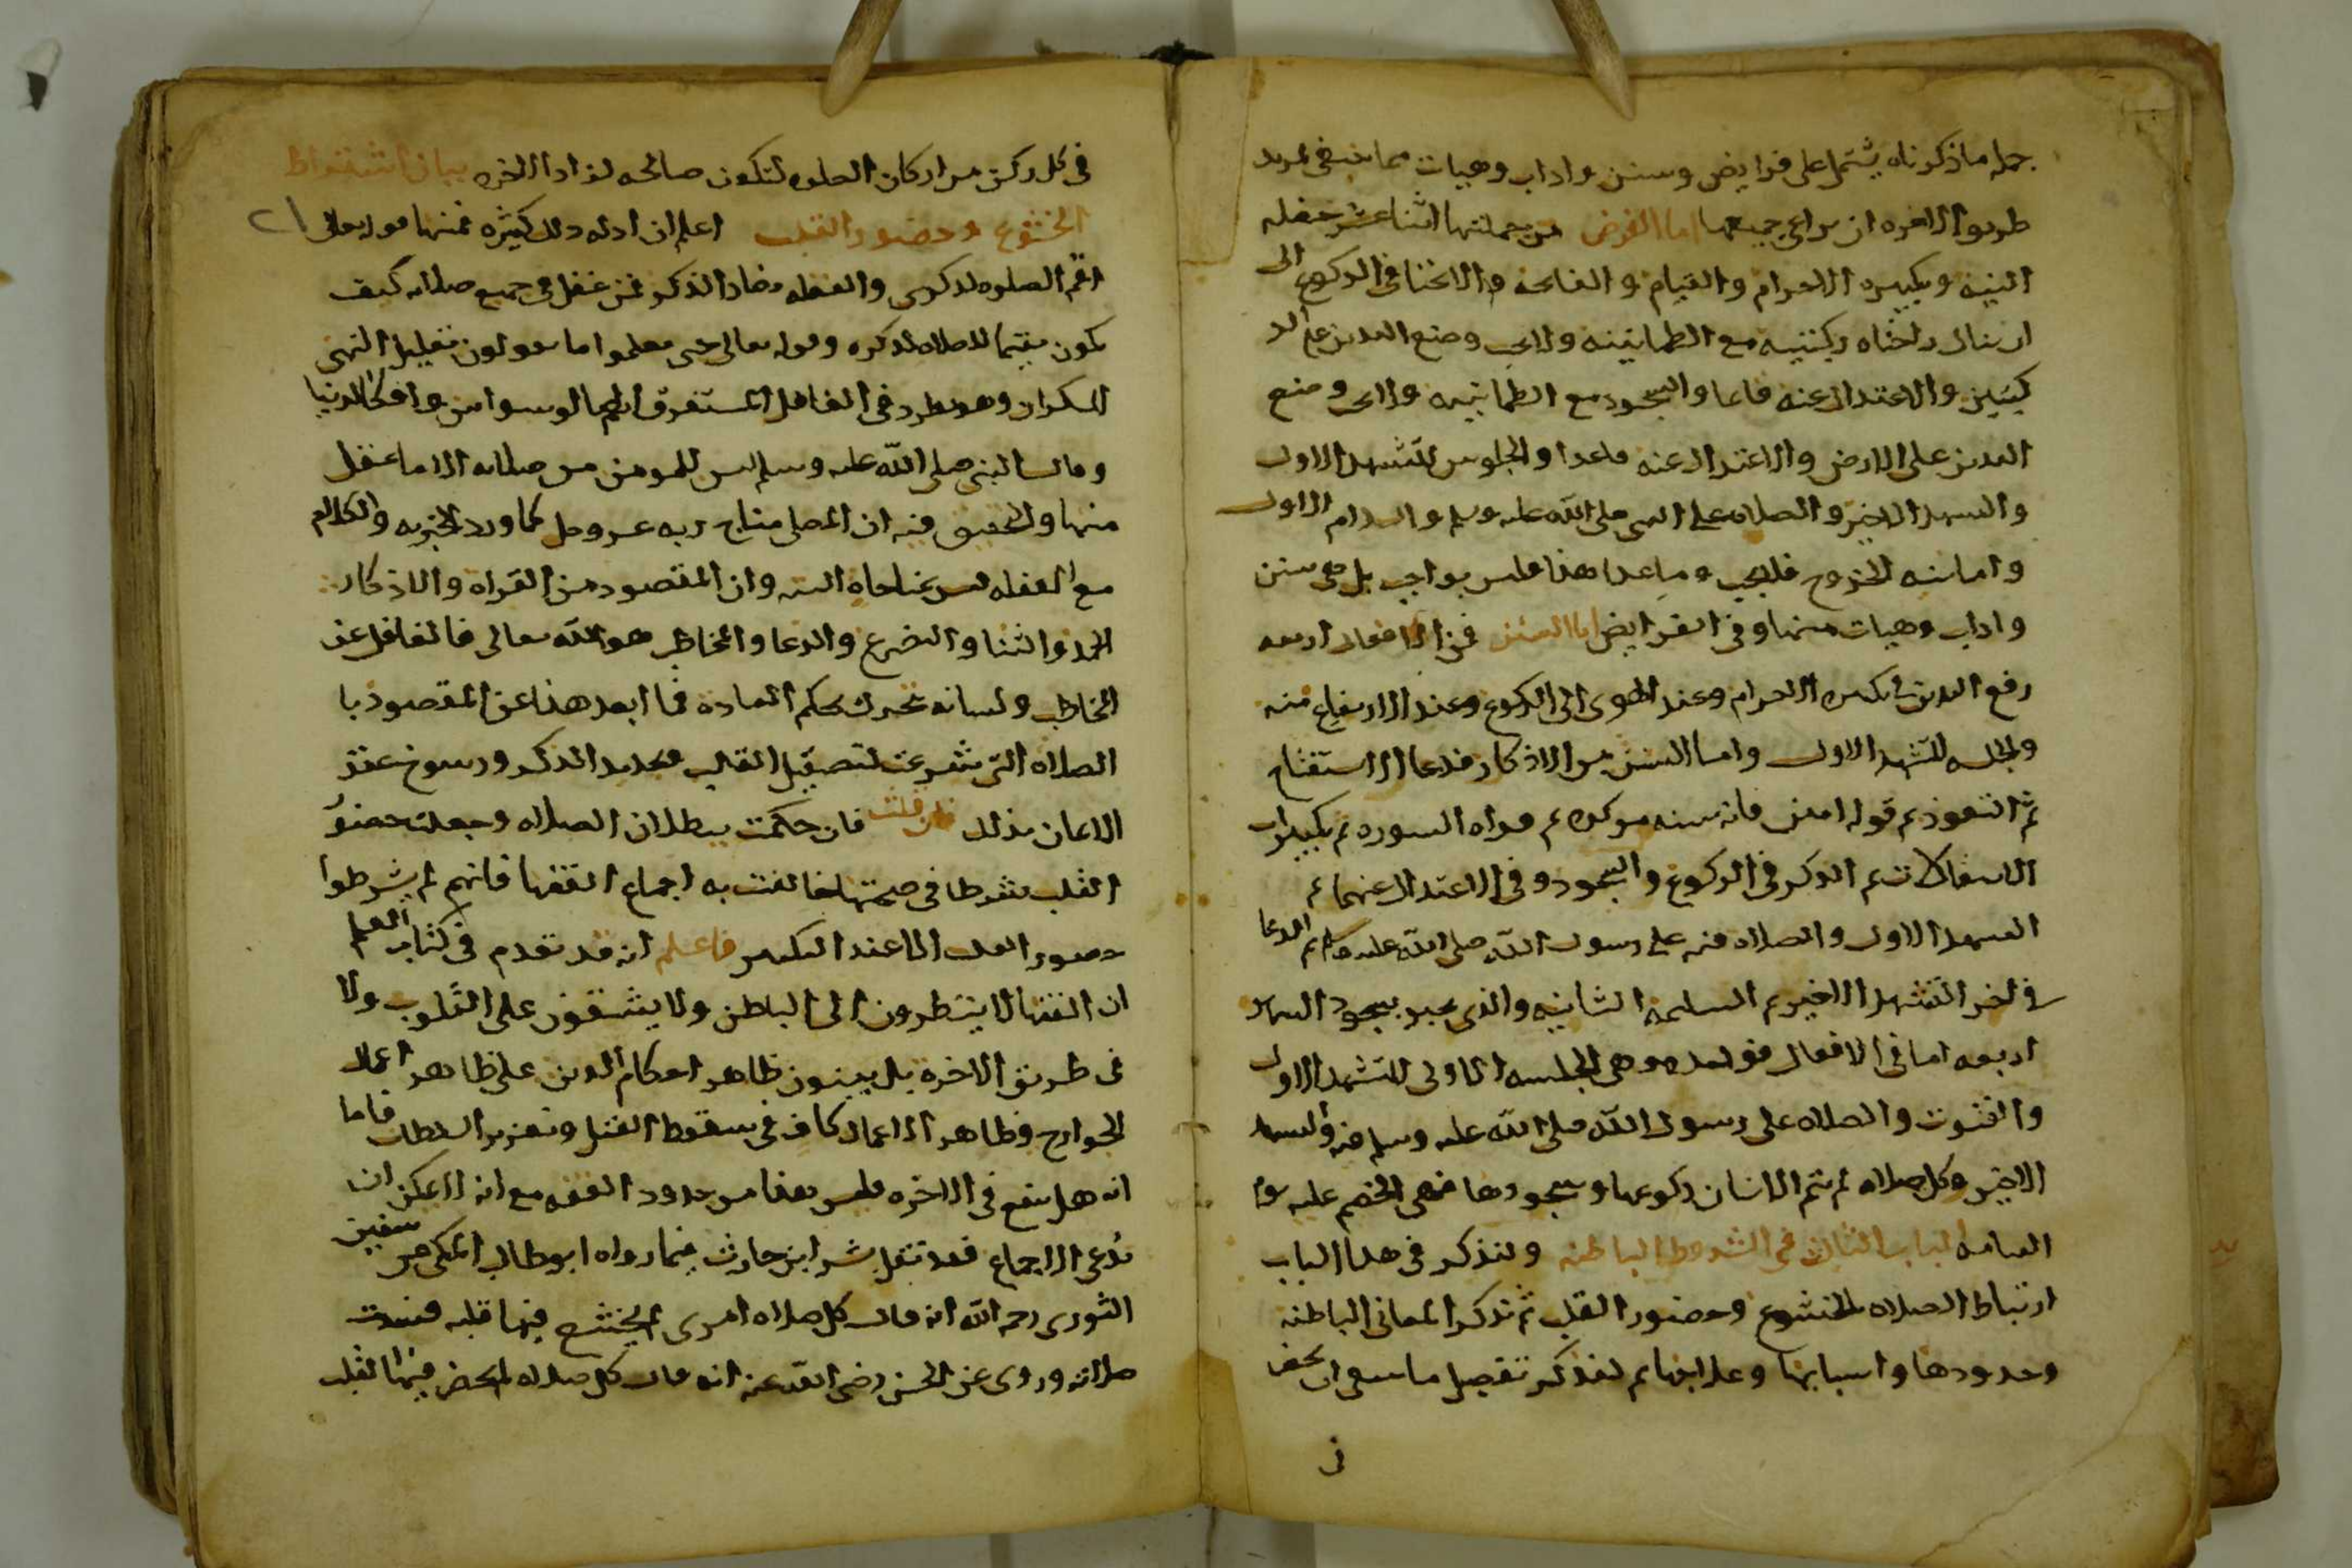 جمله ما ذكرناه يشتمل على فرايض وسنن واداب وهيات مما ينبغي لمريد
طريق الاخره ان يراعي جميعها اما الفرض من جملتها اثنا عشر خصله
النيه وتكبيره الاحرام والقيام والفاتحه والانحنا في الركوع الى
ان ينال راحتاه ركبتيه مع الطمانينه ولا يجب وضع اليدين على الر
كبتين والاعتدال عنه قايما والسجود مع الطمانينه ولا يجب وضع
اليدين على الارض والاعتدال عنه قاعدا والجلوس للتشهد الاول
والتشهد الاخير والصلاه على النبي صلى الله عليه وسلم والسلام الاول
واما نيه الخروج فلا يجب وما عدا هذا فليس بواجب بل هي سنن
واداب وهيات منها وفي الفرايض اما السنن فمن الافعال اربعه
رفع اليدين في تكبيره الاحرام وعند الهوى الى الركوع وعند الارتفاع منه
والجلسه للتشهد الاول واما السنن من الاذكار فدعا الاستفتاح
ثم التعوذ ثم قوله امين فانه سنه موكده ثم قراه السوره ثم تكبيرات
الانتقالات ثم الذكر في الركوع والسجود وفي الاعتدال عنهما ثم
التشهد الاول والصلاه فيه على رسول الله صلى الله عليه وسلم ثم الدعا
في اخر التشهد الاخير ثم التسليمه الثانيه والذي يجبر بسجود السهو
اربعه اما في الافعال فواحده وهي الجلسه الاولى للتشهد الاول
والقنوت والصلاه على رسول الله صلى الله عليه وسلم فيه والتشهد
الاخير وكل صلاه لم يتم الانسان ركوعها وسجودها فهي الخصم عليه يوم
القيامه الباب الثاني في الشروط الباطنه ولنذكر في هذا الباب
ارتباط الصلاه بالخشوع وحضور القلب ثم نذكر المعاني الباطنه
وحدودها واسبابها وعلاجها ثم لنذكر تفصيل ما ينبغي ان يحضر
في
في كل ركن من اركان الصلوه لتكون صالحه لزاد الاخره بيان اشتراط
الخشوع وحضور القلب اعلم ان ادله ذلك كثيره فمنها قوله تعالى
اقم الصلوه لذكرى والغفله تضاد الذكر فمن غفل في جميع صلاته كيف
يكون مقيما للصلاه لذكره وقوله تعالى حتى تعلموا ما تقولون تعليل لنهي
السكران وهو مطرد في الغافل المستغرق الهم بالوسواس وافكار الدنيا
وقال النبي صلى الله عليه وسلم ليس للمومن من صلاته الا ما عقل
منها والتحقيق فيه ان المصلى مناج ربه عز وجل كما ورد الخبر به والكلام
مع الغفله ليس بمناجاه البته وان المقصود من القراة والاذكار
الحمد والثنا والتضرع والدعا والمخاطب هو الله تعالى فالغافل عن
المخاطب ولسانه يتحرك بحكم العادة فما ابعد هذا عن المقصود با
الصلاه التي شرعت لتصقيل القلب وتجديد الذكر ورسوخ عقد
الايمان بذلك فان قلت فان حكمت ببطلان الصلاه وجعلت حضور
القلب شرطا في صحتها خالفت به اجماع الفقها فانهم لم يشرطوا
حضور القلب الا عند التكبير فاعلم انه قد تقدم في كتاب العلم
ان الفقها لا ينظرون الى الباطن ولا يشقون على القلوب ولا
في طريق الاخرة بل يبنون ظاهر احكام الدين على ظاهر اعمال
الجوارح وظاهر الاعمال كاف في سقوط القتل وتعزير السلطان فاما
انه هل ينفع في الاخره فليس هذا من حدود الفقه مع انه لا يمكن ان
يدعى الاجماع فقد نقل بشر ابن حارث فيما رواه ابو طالب المكي عن سفين
الثورى رحمه الله انه قال كل صلاه امرى لم يخشع فيها قلبه فسدت
صلاته وروى عن الحسن رضى الله عنه انه قال كل صلاه لا يحضر فيها القلب